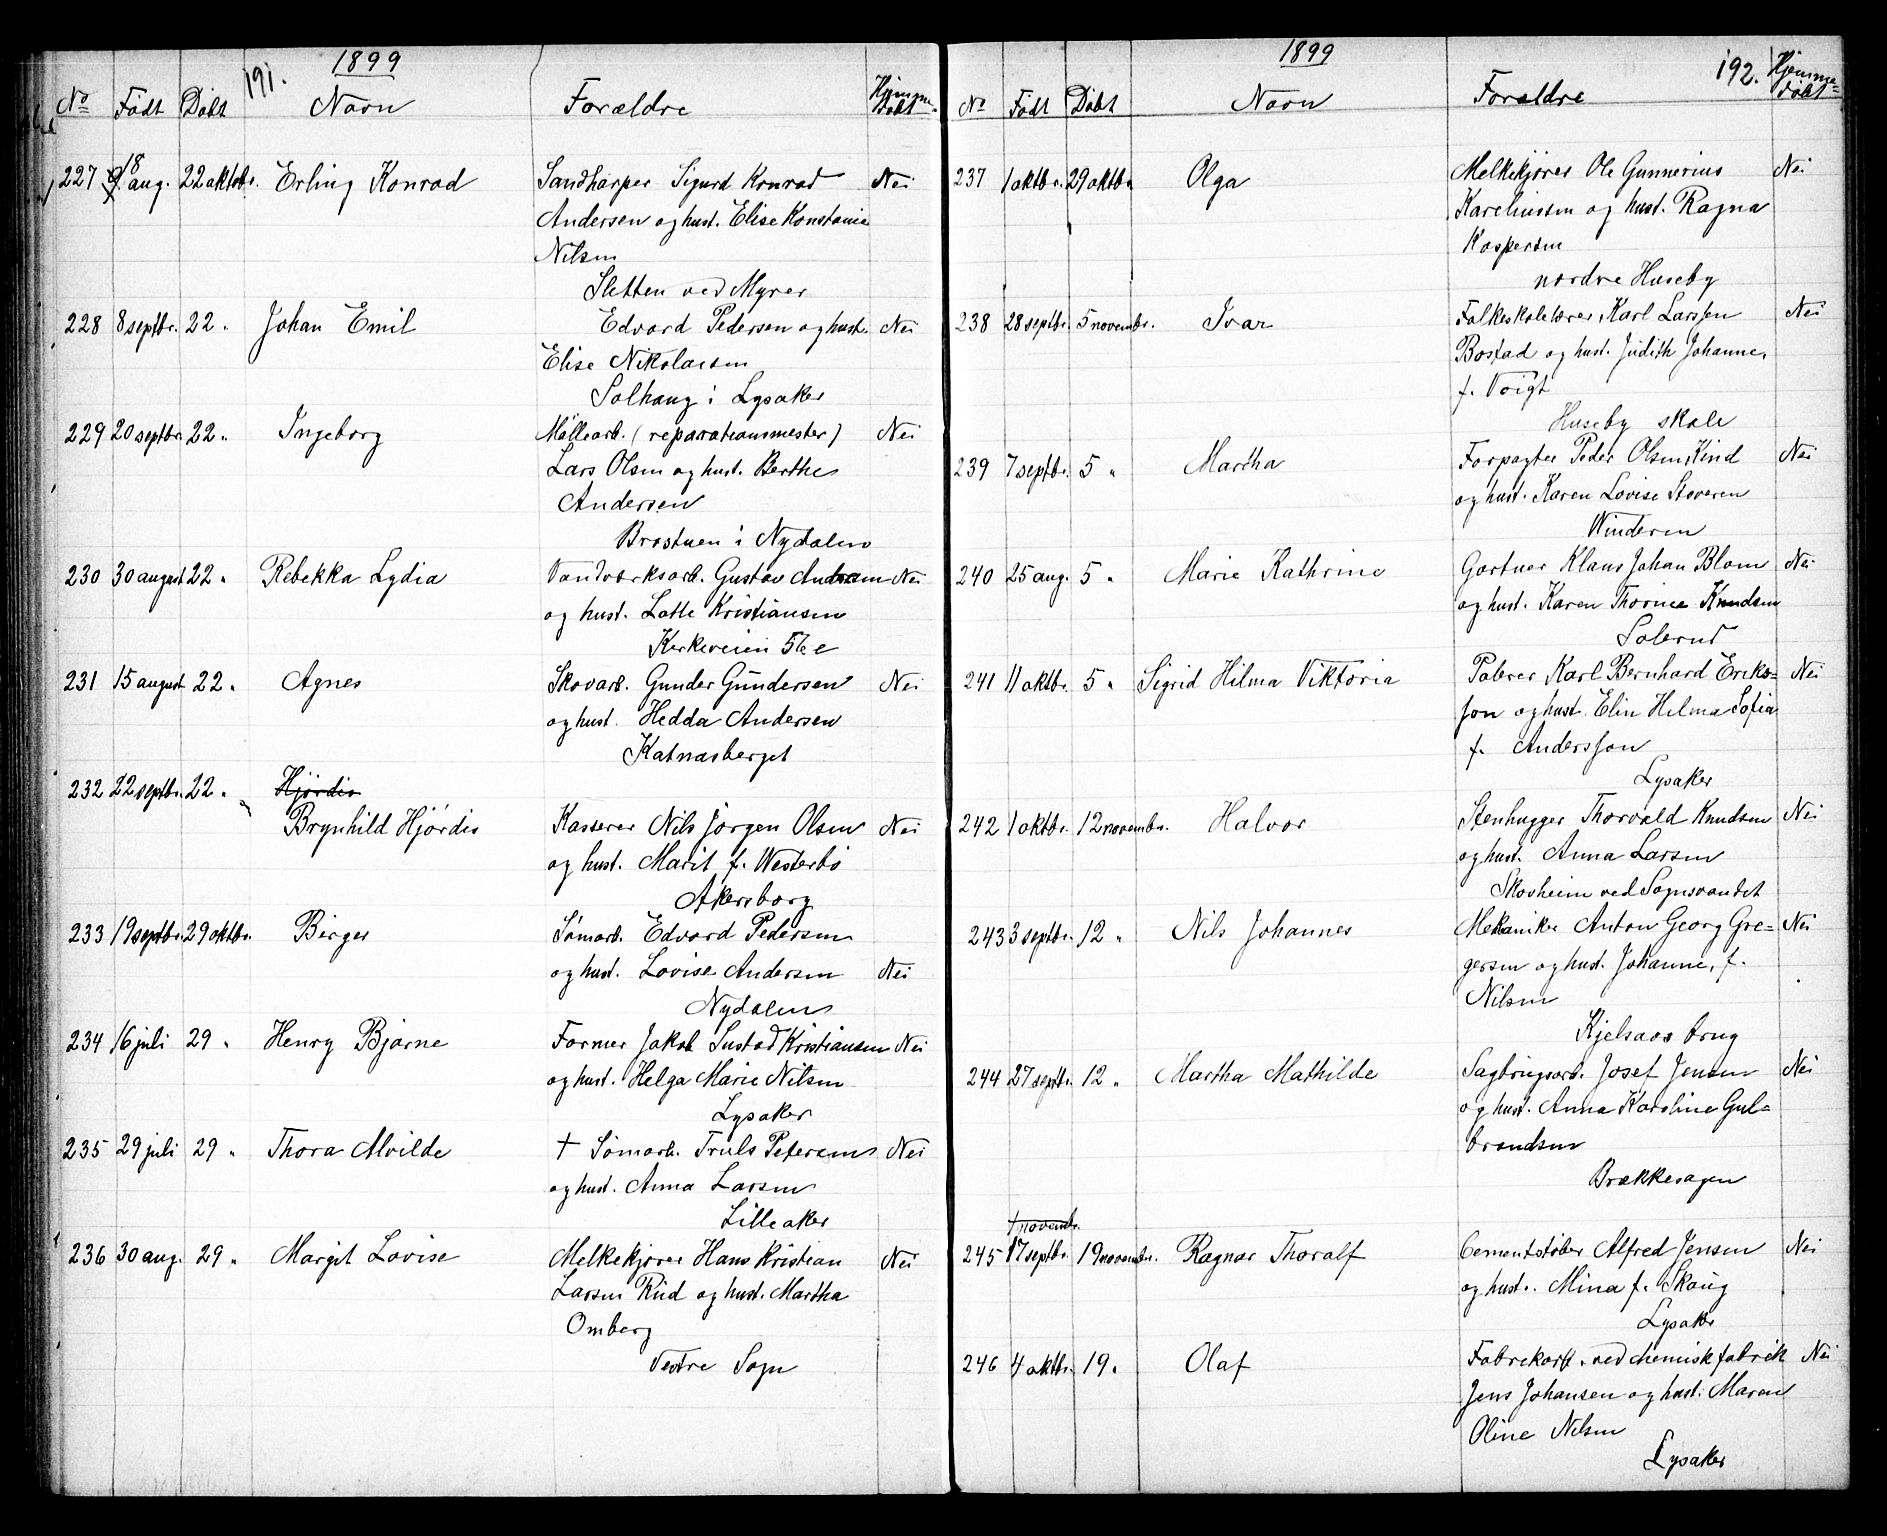 191.
1899
No Født Døbt Navn Forældre Hjemmedøbt
227 18 aug. 22 oktobr. Erling Konrad Sandharper Sigurd Konrad Nei
Andersen og hust. Elise Konstanse
Nilsen
Sletten ved Myrer
228 8 septbr. 22 „ Johan Emil Edvard Pedersen og hust. Nei
Elise Nikolaisen
Solhaug i Lysaker
229 20 septbr. 22 „ Ingeborg Møllearb. (reparationsmester) Nei
Lars Olsen og hust. Berthe
Andersen
Brostuen i Nydalen
230 30 august 22 „ Rebekka Lydia Vandværksarb. Gustav Andersen Nei
og hust. Lotte Kristiansen
Kirkeveien 56 e
231 15 august 22 „ Agnes Skovarb. Gunder Gundersen Nei
og hust. Hedda Andersen
Katnasberget
232 22 septbr. 22 „ Hjørdis
Brynhild Hjørdis Kasserer Nils Jørgen Olsen Nei
og hust. Marit f. Westerbø
Akersborg
233 19 septbr. 29 oktbr. Birger Tømarb. Edvard Pedersen
og hust. Lovise Andersen Nei
Nydalen
234 16 juli 29 „ Henry Bjarne Former Jakob Sustad Kristiansen Nei
og hust. Helga Marie Nilsen
Lysaker
235 29 juli 29 „ Thora Alvilde † Tømarb. Truls Petersen Nei
og hust. Anna Larsen
Lilleaker
236 30 aug. 29 „ Margit Lovise Melkekjører Hans Kristian Nei
Larsen Rud og hust. Martha
Omberg
Vestre Sogn
1899
192.
No Født Døbt Navn Forældre Hjemmedøbt
237 1 oktbr. 29 oktbr. Olga Melkekjører Ole Gunnerius Nei
Karelinssen og hust. Ragna
Kaspersen
nordre Huseby
238 28 septbr. 5 novembr. Ivar Folkeskolelærer Karl Larssen Nei
Bostad og hust. Judith Johanne,
f. Voigt
Huseby skole
239 7 septbr. 5 „ Martha Forpagter Peder Olsen Kind Nei
og hust. Karen Lovise Stoveren
Winderen
240 25 aug. 5 „ Marie Kathrine Gartner Klaus Johan Blom Nei
og hust. Karen Thorine Knudsen
Solerud
241 11 oktbr. 5 „ Sigrid Hilma Viktoria Polerer Karl Bernhard Eriks-
son og hust. Elin Hilma Sofia Nei
f. Andersson
Lysaker
242 1 oktbr. 12 novembr. Halvor Stenhugger Thorvald Knudsen Nei
og hust. Anna Larsen
Skovheim ved Sognsvandet
243 3 septbr. 12 „ Nils Johannes Mekaniker Anton Georg Gre- Nei
gersen og hust. Johanne, f.
Nilsen
Kjelsaas brug
244 27 septbr. 12 „ Martha Mathilde Sagbrugsarb. Josef Jensen Nei
og hust. Anna Karoline Gul-
brandsen
Brækkesagen
1 novembr.
245 17 septbr. 19 novembr. Ragnar Thoralf Cementstøber Alfred Jensen Nei
og hust. Mina f. Skoug
Lysaker
246 4 oktbr. 19 „ Olaf Fabrikarb. ved chemisk fabrik Nei
Jens Johansen og hust. Maren
Oline Nilsen
Lysaker